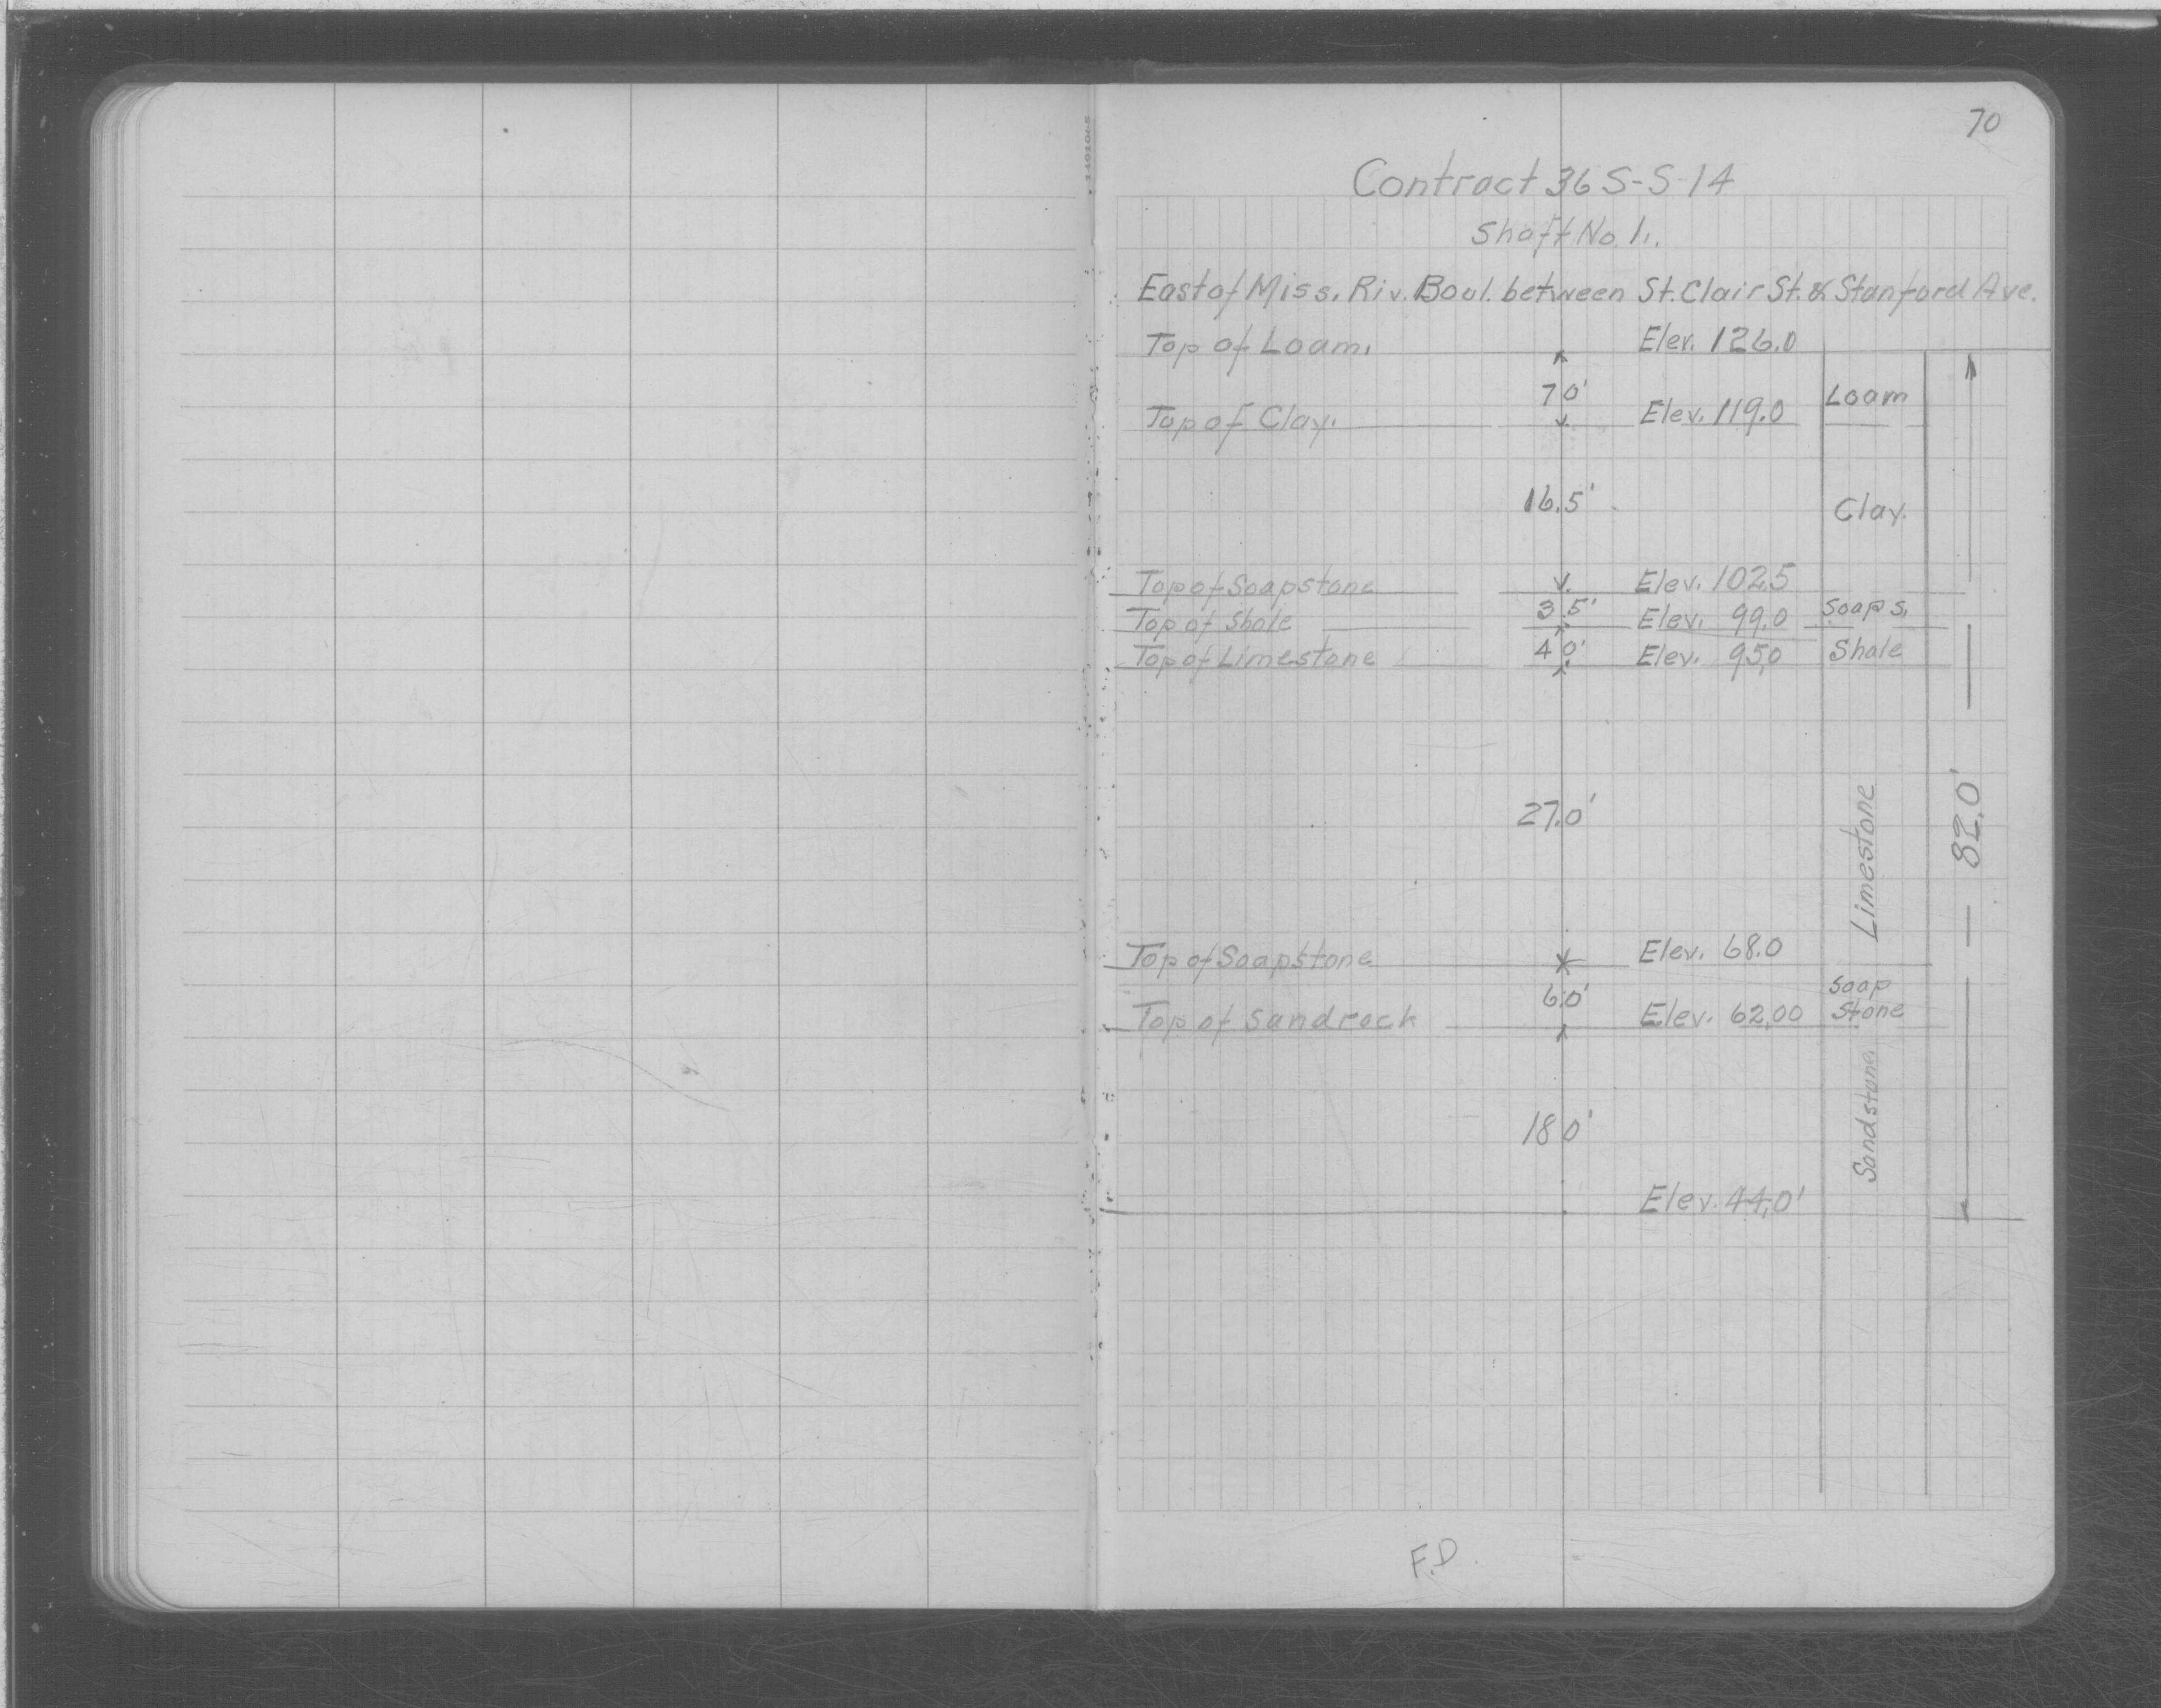 70
Contract 36 S-S-14
Shaft No. 1.
East of Miss. Riv. Boul. between St. Clair St. & Stanford Ave.
Top of Loam. Elev. 126.0
7.0' Loam
Top of Clay. Elev. 119.0
16.5' Clay.
Top of Soapstone Elev. 102.5
3.5' Soaps.
Top of Shale Elev. 99.0
4.0' Shale
Top of Limestone Elev. 95.0
27.0' Limestone 82.0'
Top of Soapstone Elev. 68.0
6.0' Soap
Stone
Top of Sandrock Elev. 62.00
18.0' Sandstone
Elev. 44.0'
F.D.